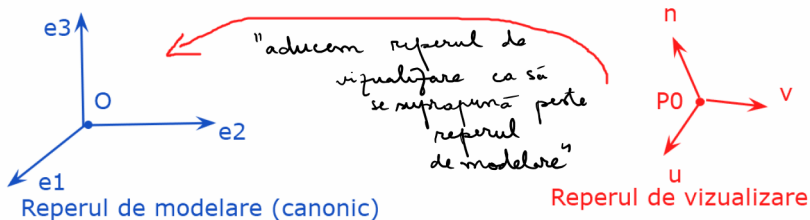 e3
O
e2
e1
Reperul de modelare (canonic)
"aducem reperul de
vizualizare ca să
se suprapună peste
reperul
de modelare"
n
P0
v
u
Reperul de vizualizare